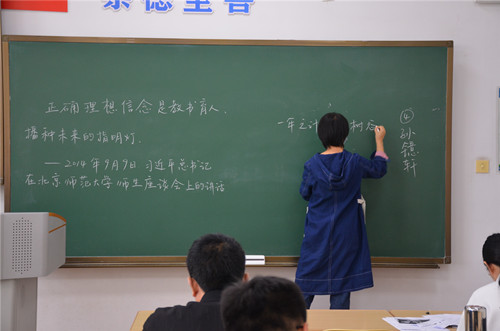 崇德至善
正确理想信念是教书育人、
播种未来的指明灯。
——2014年9月9日习近平总书记
在北京师范大学师生座谈会上的讲话
一年之计
树
④
孙
轩